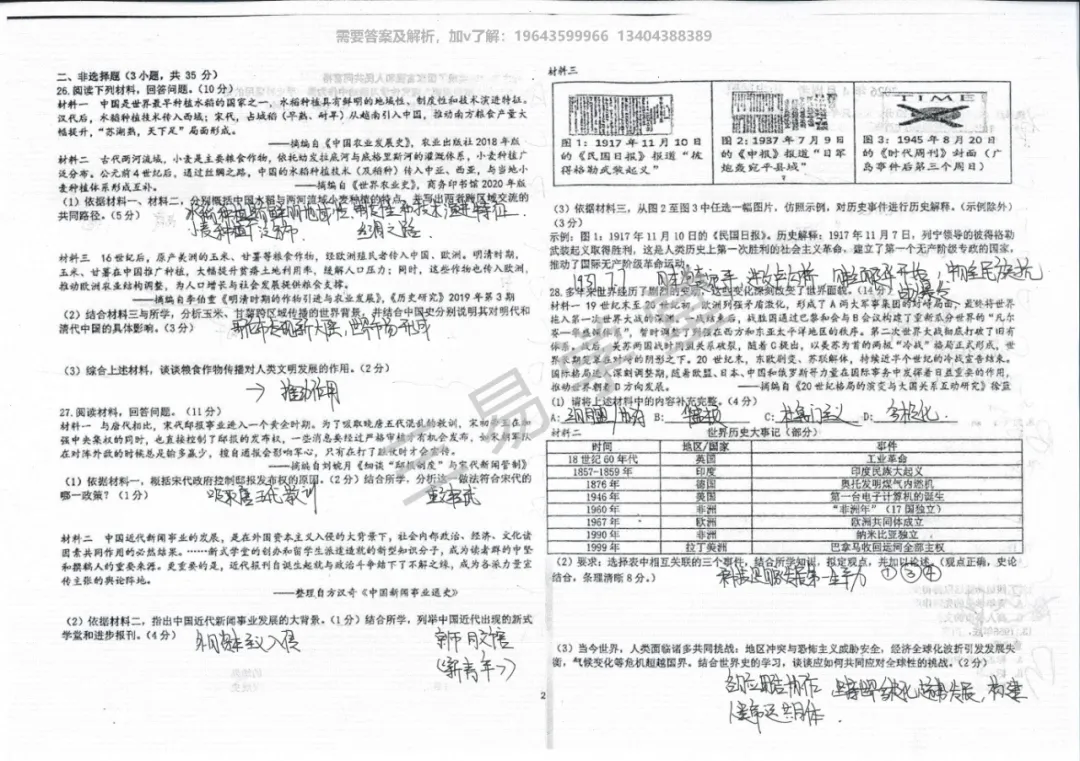 需要答案及解析，加v了解：19643599966 13404388389
二、非选择题（3小题，共 35 分）
26.阅读下列材料，回答问题。（10分）
材料一 中国是世界最早种植水稻的国家之一，水稻种植具有鲜明的地域性、制度性和技术演进特征。
汉代后，水稻种植技术传入西域；宋代，占城稻（早熟、耐旱）从越南引入中国，推动南方粮食产量大
幅提升，“苏湖熟，天下足”局面形成。
——摘编自《中国农业发展史》，农业出版社 2018年版
材料二 古代两河流域，小麦是主要粮食作物，依托幼发拉底河与底格里斯河的灌溉体系，小麦种植广
泛分布。公元前4世纪后，通过丝绸之路，中国的水稻种植技术（及稻种）传入中亚、西亚，与当地小
麦种植体系形成互补。 ——摘编自《世界农业史》，商务印书馆 2020 年版
（1）依据材料一、材料二，分别概括中国水稻与两河流域小麦种植的特点，并写出两者跨区域交流的
共同路径。（5分）
水稻种植具有鲜明地域性、制度性和技术演进特征.
小麦种植广泛分布. 丝绸之路.
材料三 16世纪后，原产美洲的玉米、甘薯等粮食作物，经欧洲殖民者传入中国、欧洲。明清时期，
玉米、甘薯在中国推广种植，大幅提升贫瘠土地利用率，缓解人口压力；同时，这些作物也传入欧洲，
推动欧洲农业结构调整，为人口增长与社会发展提供粮食支撑。
——摘编自李伯重《明清时期的作物引进与农业发展》，《历史研究》2019年第3期
（2）结合材料三与所学，分析玉米、甘薯跨区域传播的世界背景，并结合中国史分别说明其对明代和
清代中国的具体影响。（3分）
（3）综合上述材料，谈谈粮食作物传播对人类文明发展的作用。（2分）
→ 推动作用
27.阅读材料，回答问题。（11分）
材料一 与唐代相比，宋代邸报事业进入一个黄金时期。为了吸取晚唐五代混乱的教训，宋初帝王在加
强中央集权的同时，也直接控制了邸报的发布权，一些消息要经过严格审核才有机会发布，如宋朝军队
在对阵外敌的时候总是输多赢少，擅自通报会影响军心，只有在打了胜仗时才会宣传。
——摘编自刘婉月《细谈“邸报制度”与宋代新闻管制》
（1）依据材料一，概括宋代政府控制邸报发布权的原因。（2分）结合所学，分析这一做法符合宋代的
哪一政策？（1分）
吸取唐五代教训 重文轻武
材料二 中国近代新闻事业的发展，是在外国资本主义入侵的大背景下，社会内部政治、经济、文化诸
因素共同作用的必然结果。……新式学堂的创办和留学生派遣造就的新型知识分子，成为读者群的中坚
和撰稿人的重要来源。更重要的是，近代报刊自诞生起就与政治斗争结下了不解之缘，成为各派力量宣
传主张的舆论阵地。
——整理自方汉奇《中国新闻事业通史》
（2）依据材料二，指出中国近代新闻事业发展的大背景。（1分）结合所学，列举中国近代出现的新式
学堂和进步报刊。（4分）
外国资本主义入侵 京师同文馆
《新青年》
2
材料三
图1：1917 年 11 月 10 日的《民国日报》报道“彼得格勒武装起义”
图 2：1937 年 7 月 9 日的《申报》报道“日军炮轰宛平县城”
图 3：1945 年 8 月 20 日的《时代周刊》封面（广岛事件后第三个周日）
TIME
（3）依据材料三，从图2至图3中任选一幅图片，仿照示例，对历史事件进行历史解释。（示例除外）
（3分）
示例：图1：1917年11月10日的《民国日报》。历史解释：1917年11月7日，列宁领导的彼得格勒
武装起义取得胜利，这是人类历史上第一次胜利的社会主义革命，建立了第一个无产阶级专政的国家，
推动了国际无产阶级革命运动。
1937.7.7
28.多年来世界经历了剧烈的变动，这些变化深刻改变了世界面貌。（14分）
材料一 19世纪末至20世纪初，欧洲列强矛盾激化，形成了A两大军事集团的对峙局面，最终将世界
拖入第一次世界大战的深渊。一战结束后，战胜国通过巴黎和会与B会议构建了重新瓜分世界的“凡尔
赛—华盛顿体系”，暂时调整了列强在西方和东亚太平洋地区的秩序。第二次世界大战彻底打破了旧有
体系。战后，美苏两国战时同盟关系破裂，随着C提出，以美苏为首的两极“冷战”格局正式形成，世
界长期笼罩在对峙的阴影之下。20 世纪末，东欧剧变、苏联解体，持续近半个世纪的冷战宣告结束。
国际格局进入深刻调整期，随着欧盟、日本、中国和俄罗斯等力量在国际事务中发挥着日益重要的作用，
推动世界朝着D方向发展。 ——摘编自《20世纪格局的演变与大国关系互动研究》徐蓝
（1）请将上述材料中的内容补充完整。（4分）
A: B: C: 杜鲁门主义 D: 多极化
材料二 世界历史大事记（部分）
时间 地区/国家 事件
18世纪60年代 英国 工业革命
1857-1859年 印度 印度民族大起义
1876年 德国 奥托发明煤气内燃机
1946年 美国 第一台电子计算机的诞生
1960年 非洲 “非洲年”（17国独立）
1967年 欧洲 欧洲共同体成立
1990年 非洲 纳米比亚独立
1999年 拉丁美洲 巴拿马收回运河全部主权
（2）要求：选择表中相互关联的三个事件，结合所学知识，拟定观点，并加以论述。（观点正确，史论
结合，条理清晰8分。）
①③④
（3）当今世界，人类面临诸多共同挑战：地区冲突与恐怖主义威胁安全，经济全球化波折引发发展失
衡，气候变化等危机超越国界。结合世界史的学习，谈谈应如何共同应对全球性的挑战。（2分）
构建
人类命运共同体.
三易学